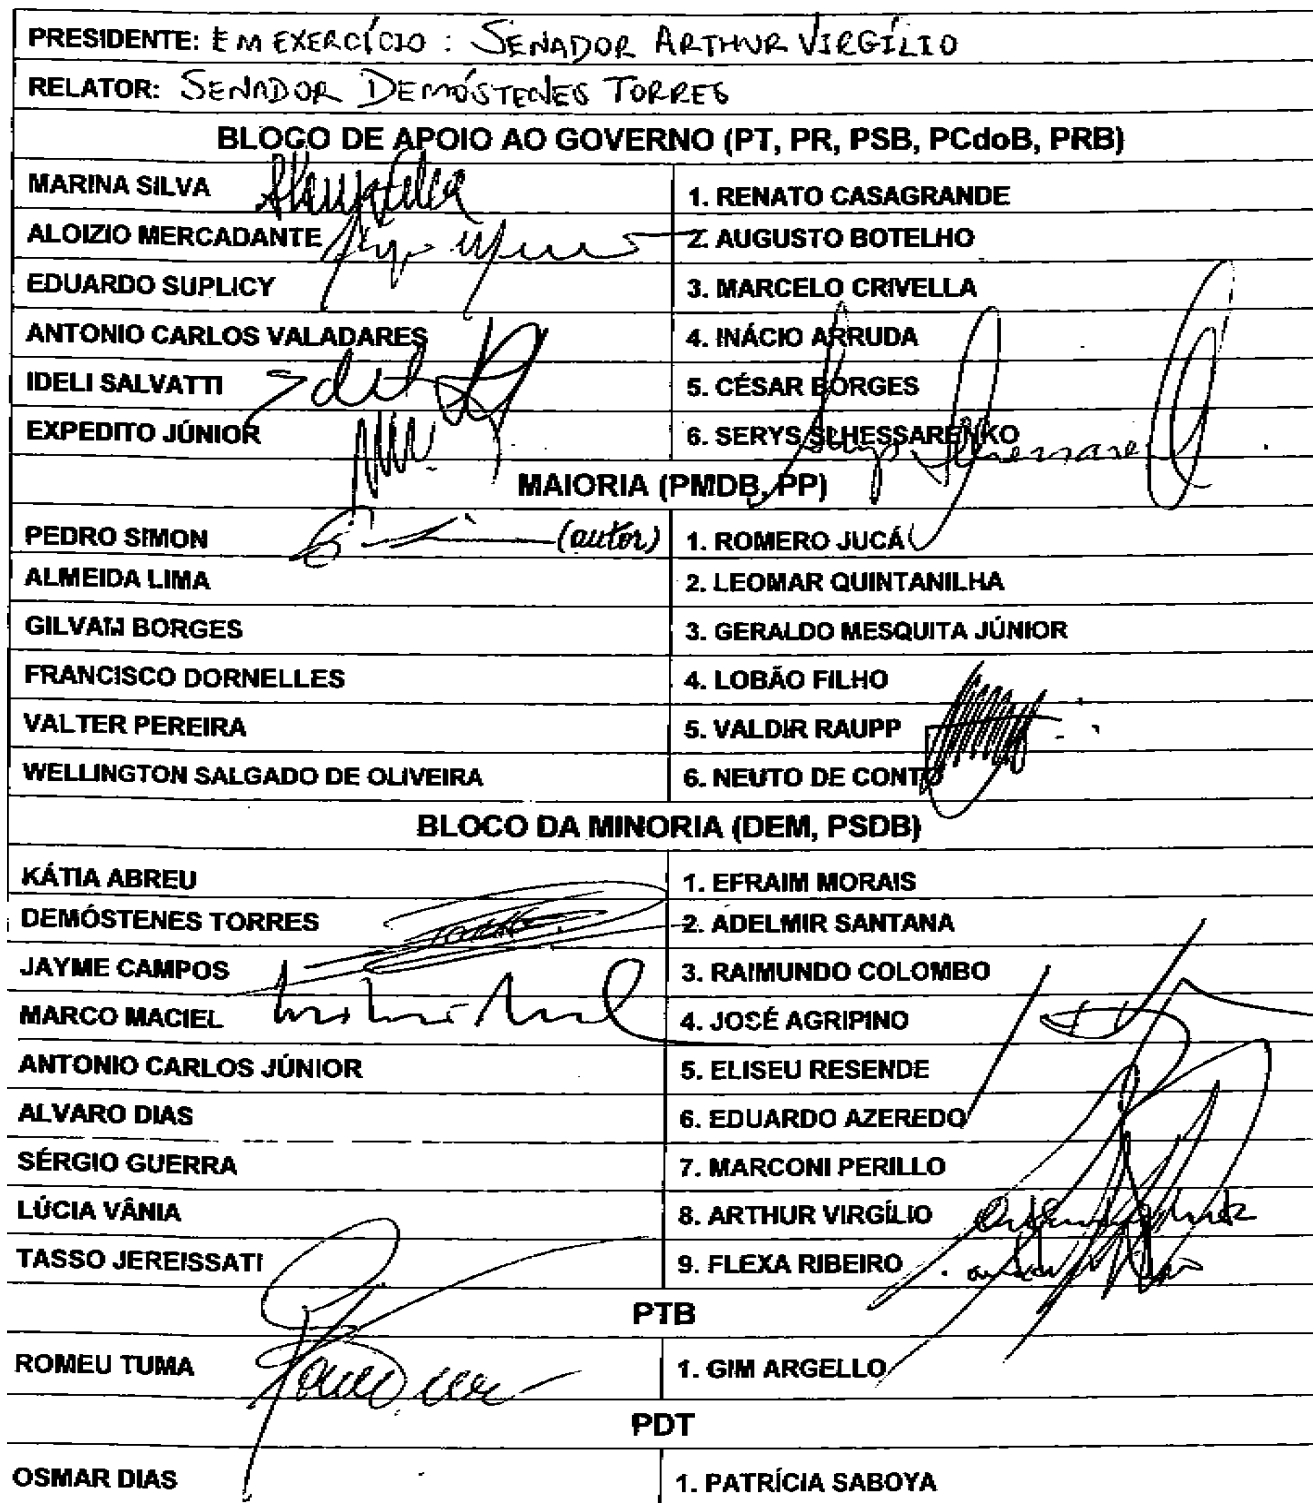 PRESIDENTE: EM EXERCÍCIO: SENADOR ARTHUR VIRGÍLIO
RELATOR: SENADOR DEMÓSTENES TORRES
BLOCO DE APOIO AO GOVERNO (PT, PR, PSB, PCdoB, PRB)
MARINA SILVA 1. RENATO CASAGRANDE
ALOIZIO MERCADANTE 2. AUGUSTO BOTELHO
EDUARDO SUPLICY 3. MARCELO CRIVELLA
ANTONIO CARLOS VALADARES 4. INÁCIO ARRUDA
IDELI SALVATTI 5. CÉSAR BORGES
EXPEDITO JÚNIOR 6. SERYS SLHESSARENKO
MAIORIA (PMDB, PP)
PEDRO SIMON (autor) 1. ROMERO JUCÁ
ALMEIDA LIMA 2. LEOMAR QUINTANILHA
GILVAM BORGES 3. GERALDO MESQUITA JÚNIOR
FRANCISCO DORNELLES 4. LOBÃO FILHO
VALTER PEREIRA 5. VALDIR RAUPP
WELLINGTON SALGADO DE OLIVEIRA 6. NEUTO DE CONTO
BLOCO DA MINORIA (DEM, PSDB)
KÁTIA ABREU 1. EFRAIM MORAIS
DEMÓSTENES TORRES 2. ADELMIR SANTANA
JAYME CAMPOS 3. RAIMUNDO COLOMBO
MARCO MACIEL 4. JOSÉ AGRIPINO
ANTONIO CARLOS JÚNIOR 5. ELISEU RESENDE
ALVARO DIAS 6. EDUARDO AZEREDO
SÉRGIO GUERRA 7. MARCONI PERILLO
LÚCIA VÂNIA 8. ARTHUR VIRGÍLIO
TASSO JEREISSATI 9. FLEXA RIBEIRO
PTB
ROMEU TUMA 1. GIM ARGELLO
PDT
OSMAR DIAS 1. PATRÍCIA SABOYA